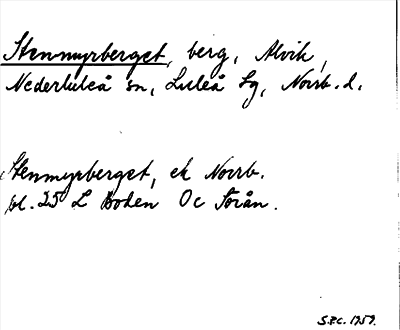 Stenmyrberget, berg, Alvik,
Nederluleå sn, Luleå tg, Norrb. l.
Stenmyrberget, ek Norrb.
bl. 25 L Boden Oc Torån.
S.E.C. 1959.